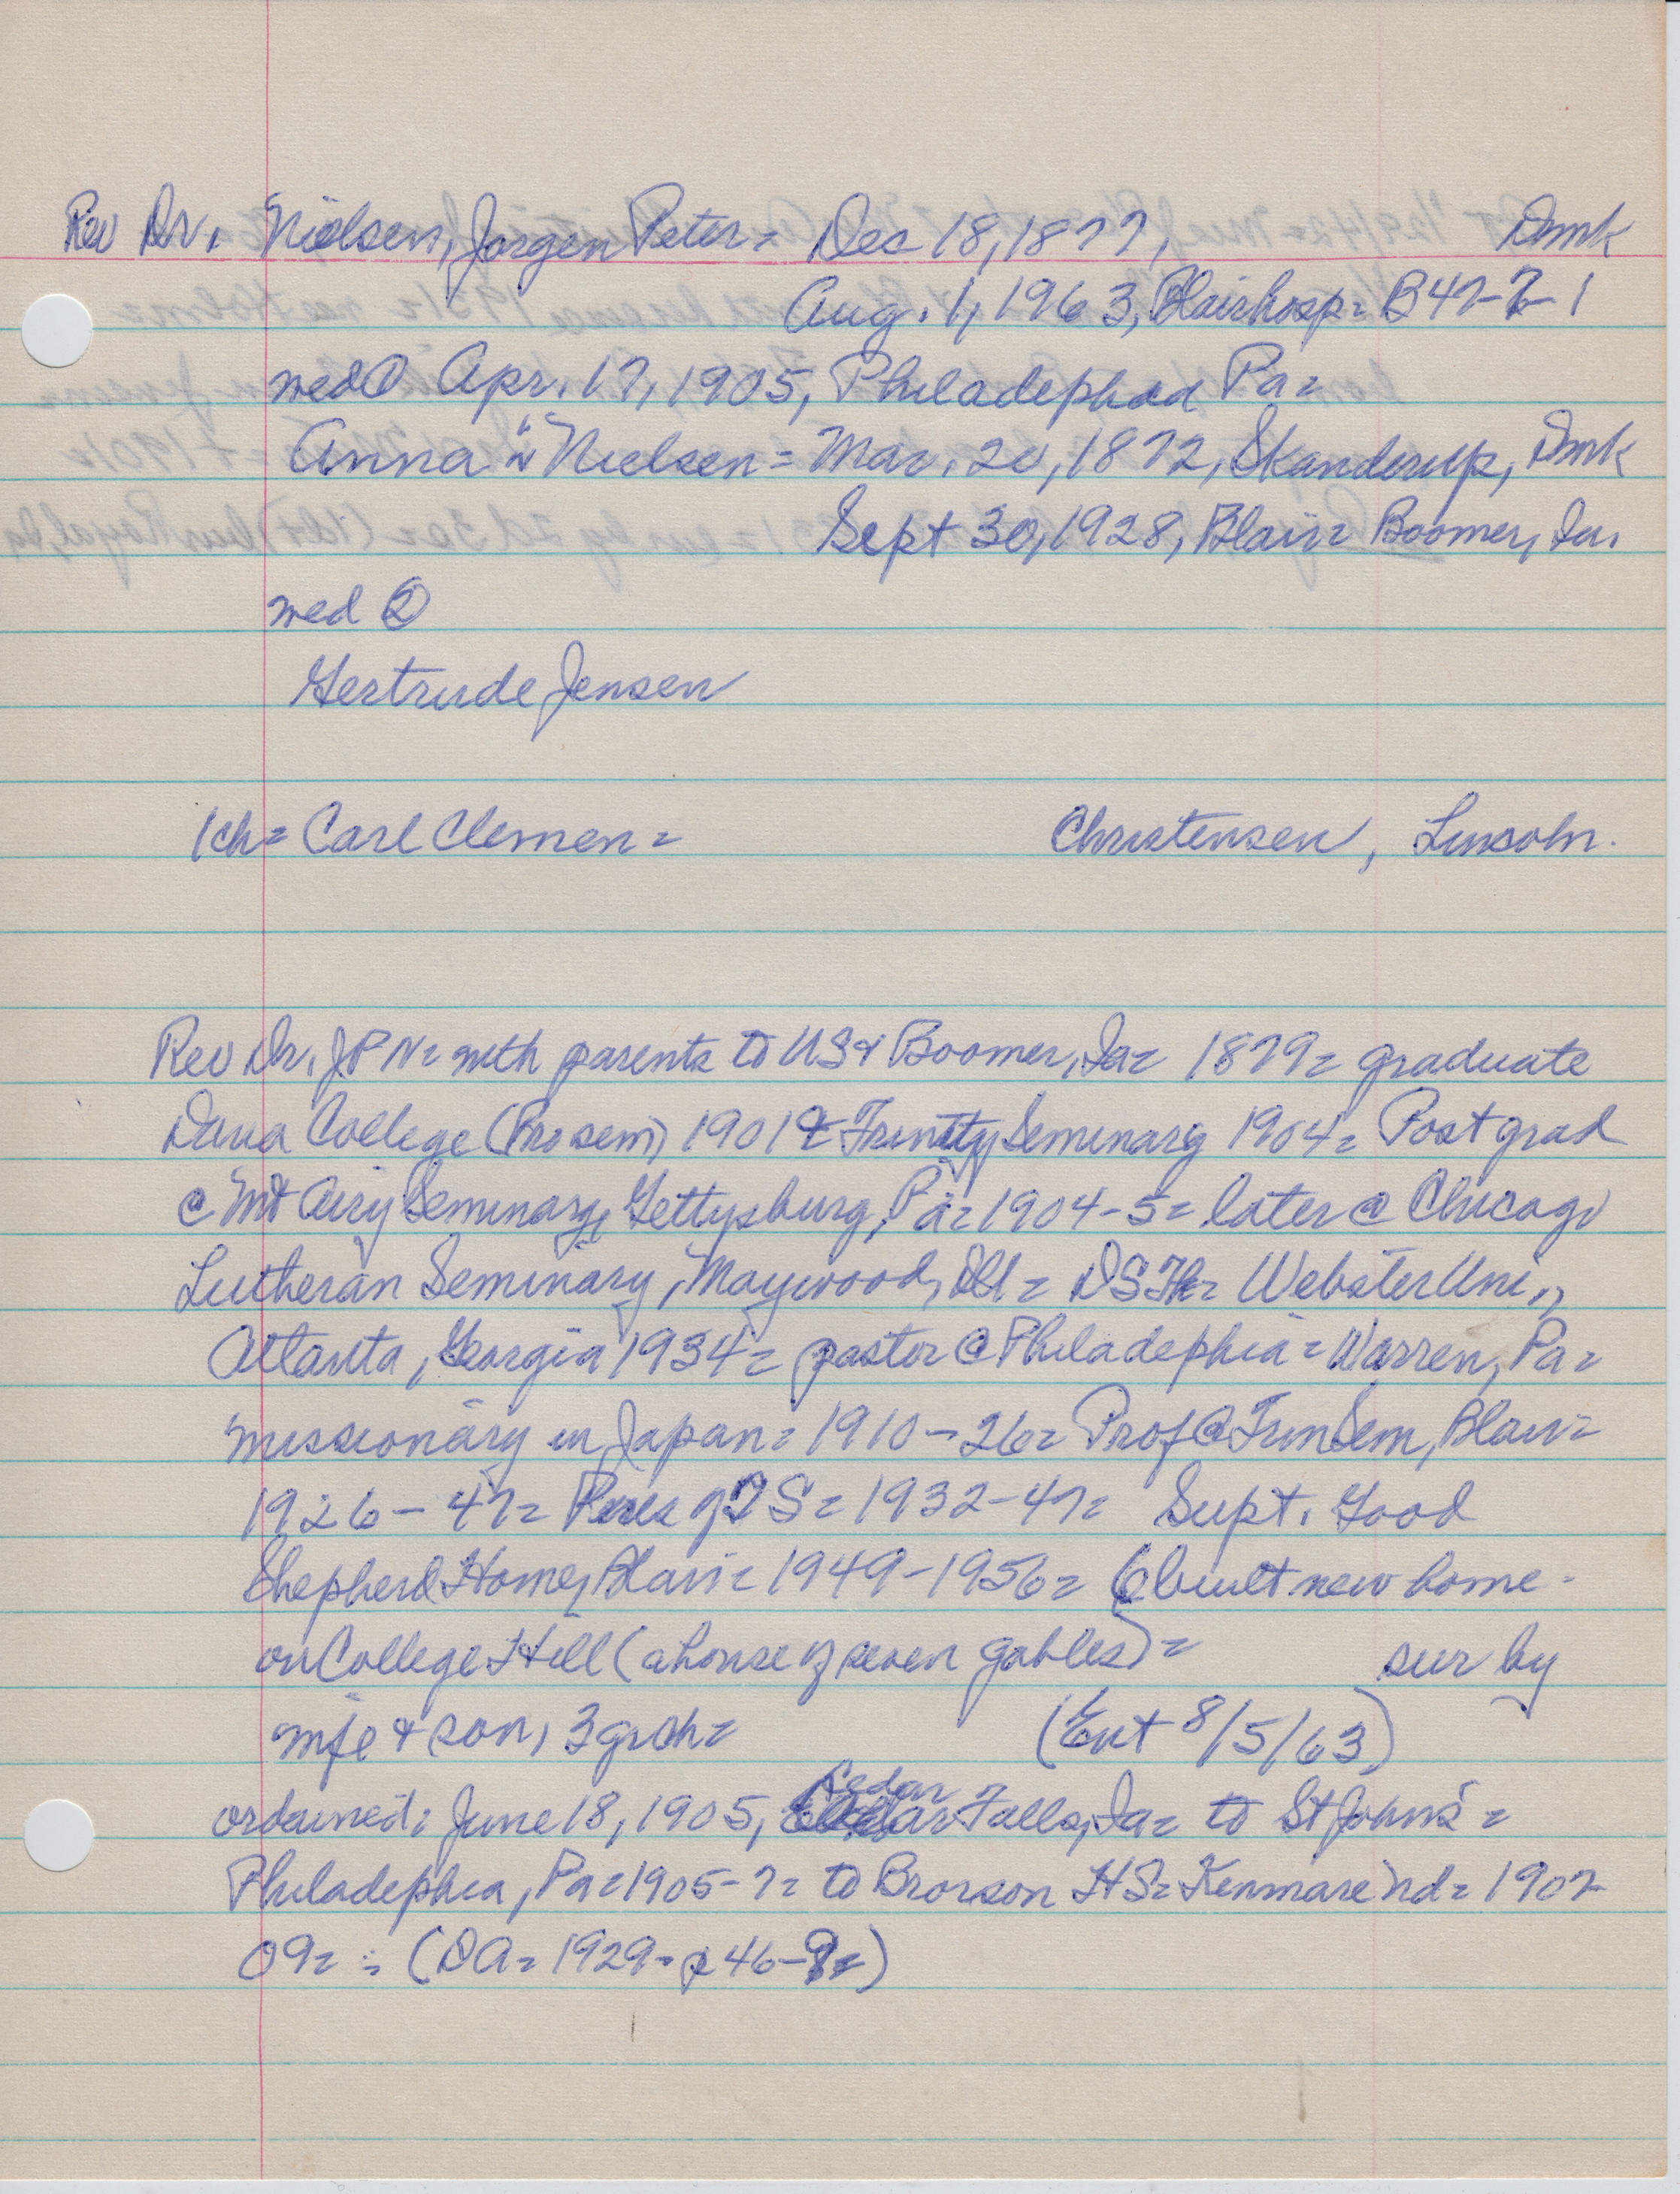 Rev Dr. Nielsen, Jorgen Peter = Dec 18, 1877, Dmk
Aug. 1, 1963, Blair hosp = B47-7-1
wed ① Apr. 17, 1905, Philadephad Pa =
Anna "N" Nielsen = Mar. 20, 1872, Skanderup, Dmk
Sept 30, 1928, Blair = Boomer, Ia.
wed ②
Gertrude Jensen
1ch = Carl Clemen = Christensen, Lincoln.
Rev Dr. JPN = with parents to US & Boomer, Ia = 1879 = graduate
Dana College (Prosem) 1901 & Trinity Seminary 1904 = Post grad
@ Mt Airy Seminary, Gettysburg, Pa = 1904-5 = later @ Chicago
Lutheran Seminary, Maywood, Ill = DSTh = Webster Uni.,
Atlanta, Georgia 1934 = pastor @ Philadephia = Warren, Pa =
missionary in Japan = 1910-26 = Prof @ Trin Sem, Blair =
1926-47 = Pres of TS = 1932-47 = Supt. Good
Shepherd Home, Blair = 1949-1956 = (built new home -
on College Hill (a house of seven gables) = sur by
wife & son, 3 grch = (Ent 8/5/63)
ordained: June 18, 1905, Cedar Falls, Ia = to St John's =
Philadephia, Pa = 1905-7 = to Brorson HS = Kenmare nd = 1907-
09 = = (DA = 1929 = p 46-9 =)